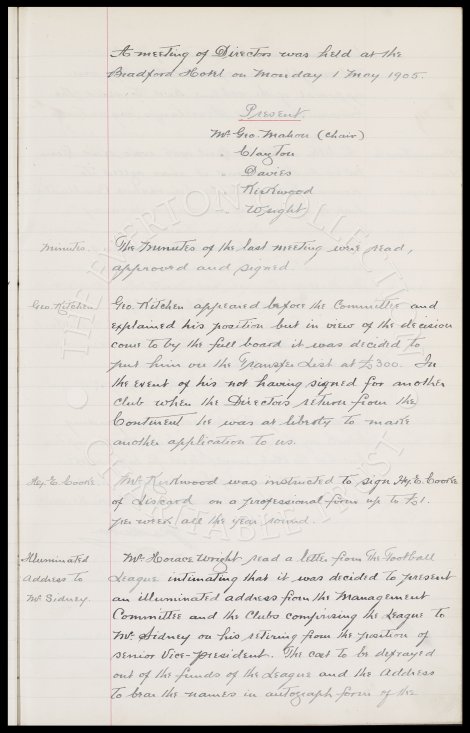 A meeting of Directors was held at the
Bradford Hotel on Monday 1 May 1905.
Present.
Mr Geo. Mahon (Chair)
" Clayton
" Davies
" Kirkwood
" Wright
Minutes. The Minutes of the last meeting were read,
approved and signed
Geo. Kitchen Geo. Kitchen appeared before the Committee and
explained his position but in view of the decision
come to by the full board it was decided to
put him on the Transfer List at £300. In
the event of his not having signed for another
club when the Directors return from the
Continent he was at liberty to make
another application to us.
Hy. E. Cooke Mr Kirkwood was instructed to sign Hy. E. Cooke
of Liscard on a professional form up to £1.
per week all the year round.
Illuminated Mr Horace Wright read a letter from The Football
Address to League intimating that it was decided to present
Mr Sidney. an illuminated address from the Management
Committee and the Clubs comprising the League to
Mr Sidney on his retiring from the position of
senior Vice-president. The cost to be defrayed
out of the funds of the League and the Address
to bear the names in autograph form of the
THE EVERTON COLLECTION
CHARITABLE TRUST